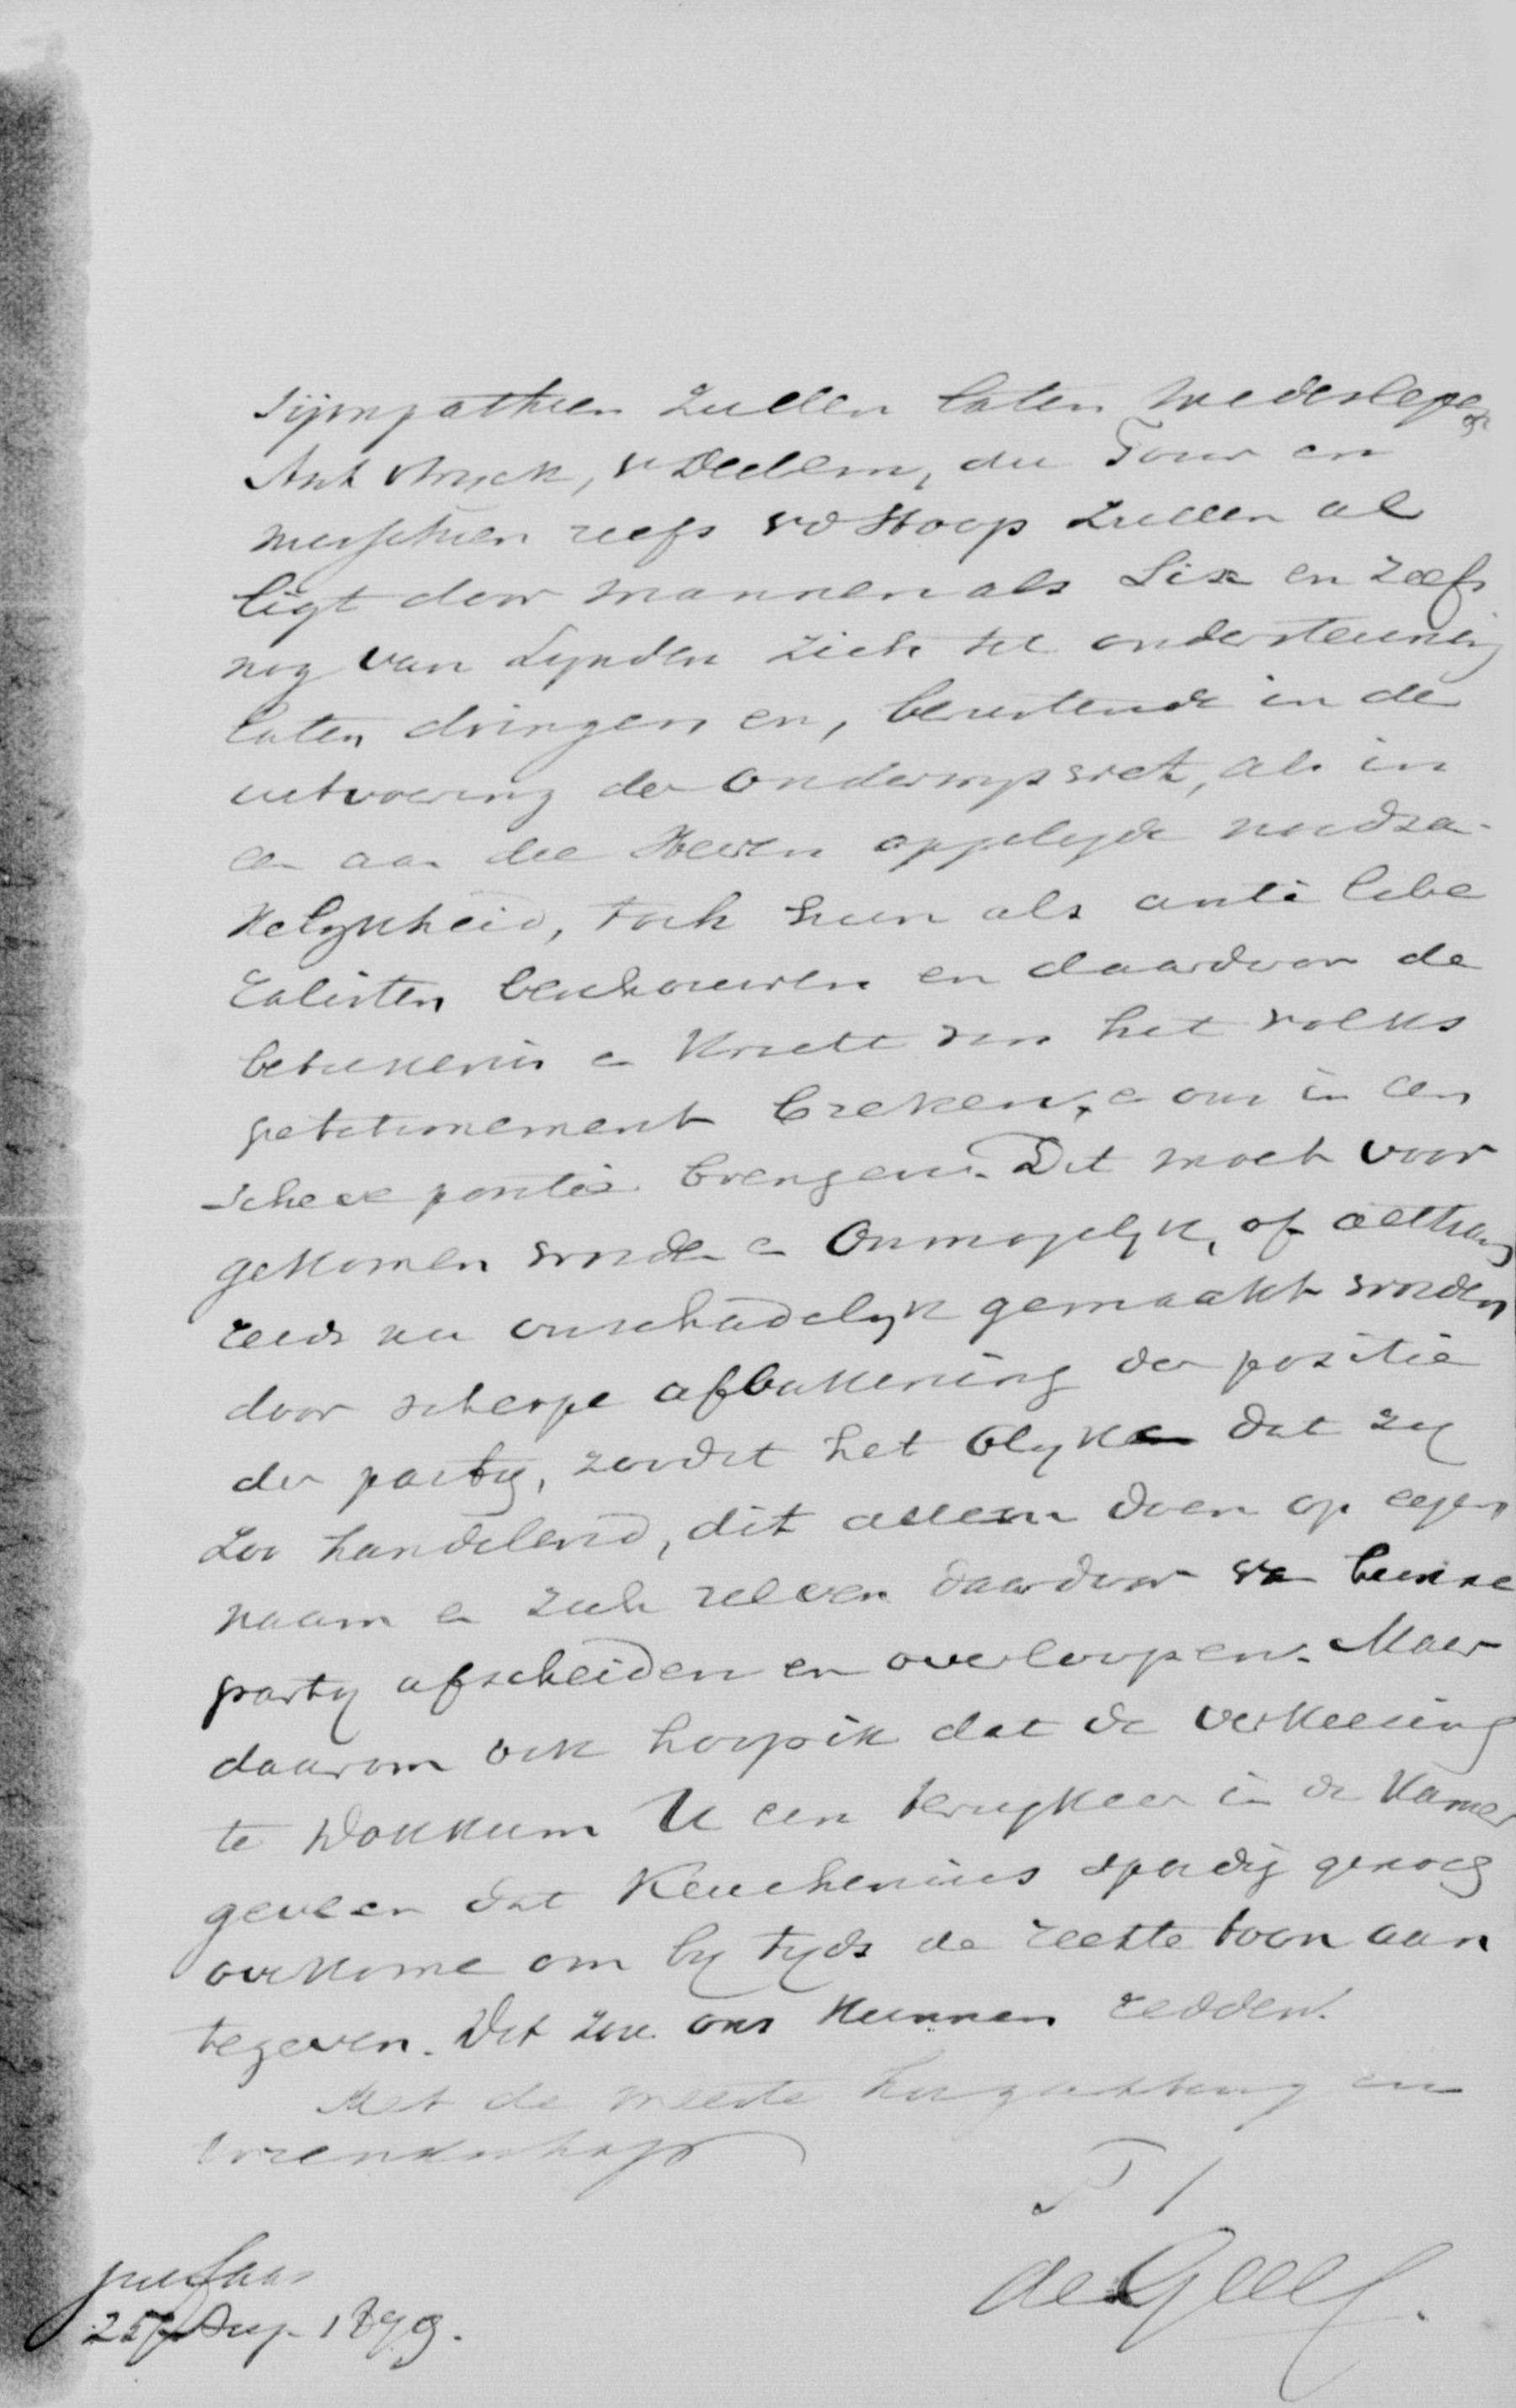 sijmpathien zullen laten medeslepen
v Dedem, du Tour en
misschien zelfs vd Hoop zullen al
ligt door mannen als Six en zelfs
nog van Lynden zich tot ondersteuning
laten dringen en, berustende in de
uitvoering der onderwyswet, als in
een aan die Heeren opgelegde noodza-
kelykheid, toch hun als anti libe
ralisten beschouwen en daardoor de
betekenis en kracht van het volks
petitionement breken, en ons in een
scheve positie brengen. Dit moet voor
gekomen worden en onmogelyk, of althans
reeds nu onschadelyk gemaakt worden
door scherpe afbakening der positie
der party, zoodat het blyke dat zy
zoo handelend, dit alleen doen op eigen
naam en zich zelven daardoor van hunne
party afscheiden en overloopen. Maar
daarom ook hoop ik dat de verkiezing
te Dokkum U een terugkeer in de Kamer
geve en dat Keuchenius spoedig genoeg
overkome om by tyds de rechte toon aan
tegeven. Dit zou ons kunnen redden.
Met de meeste hoogachting en
vriendschap
T T
de Geer.
Jutfaas
25 Aug. 1879.